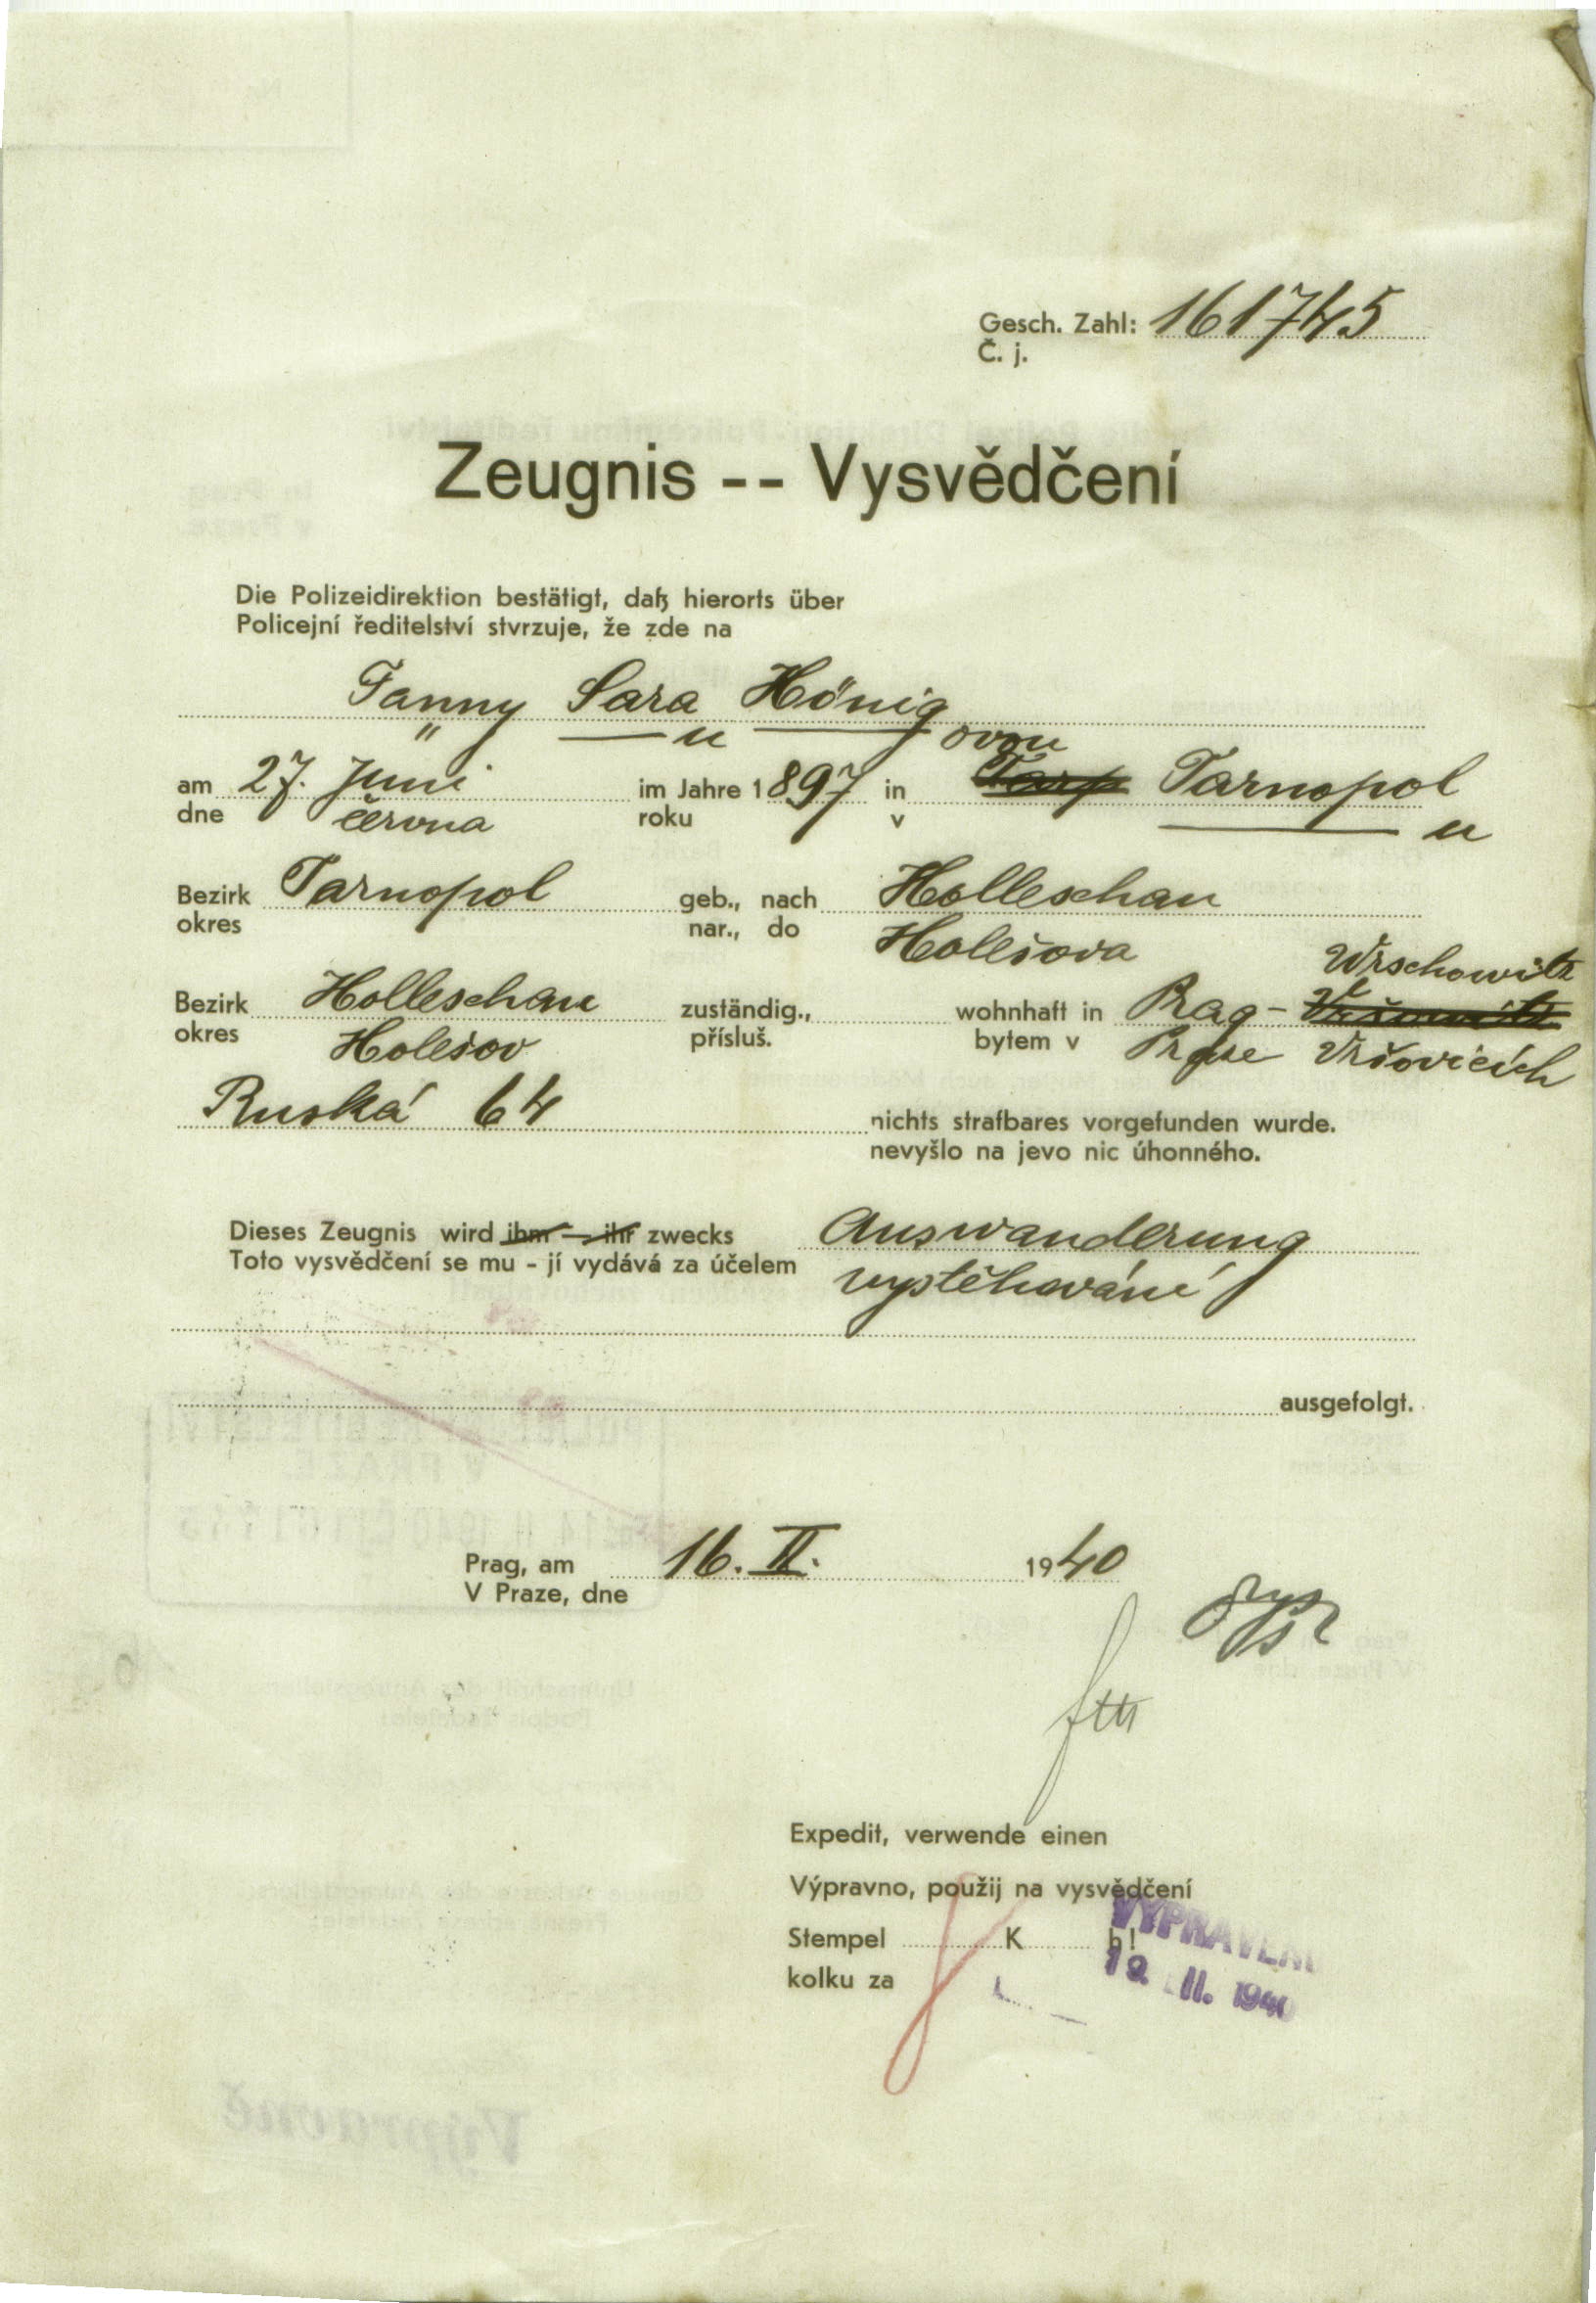 Gesch. Zahl: 161745
Č. j.
Zeugnis -- Vysvědčení
Die Polizeidirektion bestätigt, daß hierorts über
Policejní ředitelství stvrzuje, že zde na
Fanny Sara Hönig
" — u — ovou
am 27. Juni im Jahre 1897 in Tarnopol
dne června roku v — u
Bezirk Tarnopol geb., nach Holleschau
okres nar., do Holešova
Wrschowitz
Bezirk Holleschau zuständig., wohnhaft in Prag -
okres Holešov přísluš. bytem v Praze Vršovicích
Ruská 64 nichts strafbares vorgefunden wurde.
nevyšlo na jevo nic úhonného.
Dieses Zeugnis wird ihm - ihr zwecks Auswanderung
Toto vysvědčení se mu - jí vydává za účelem vystěhování
ausgefolgt.
Prag, am 16. II. 1940
V Praze, dne
Expedit, verwende einen
Výpravno, použij na vysvědčení
Stempel K h!
kolku za
VYPRAVENO
19. II. 1940